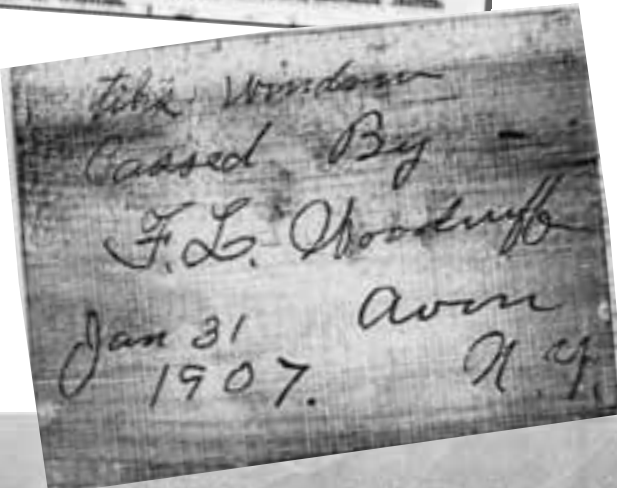 this window
Cassed By
F. L. Woodruff
Jan 31 Avon
1907. N.Y.